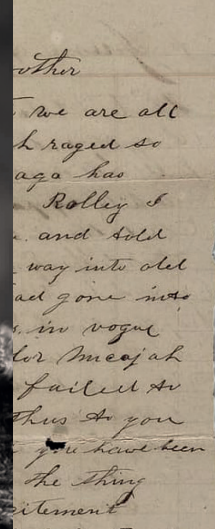 other
we are all
h raged so
aga has
Rolley I
and told
way into old
ad gone into
s in vogue
lor Micajah
failed to
thus to you
you have been
the thing
citement